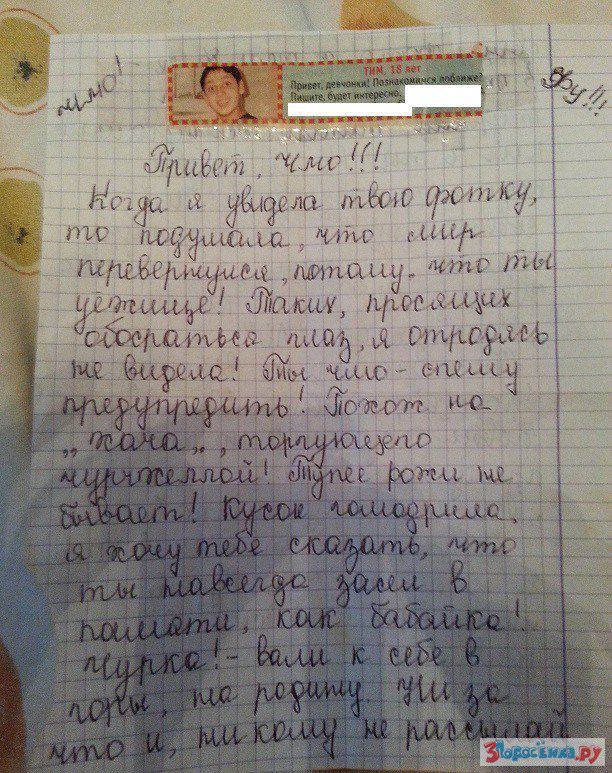 чмо!
фу!!!
ТИМ, 18 лет
Привет, девчонки! Познакомимся поближе?
Пишите, будет интересно,
Привет, чмо!!!
Когда я увидела твою фотку,
то подумала, что мир
перевернулся, потому, что ты
уежище! Таких, просящих
обосраться глаз, я отродясь
не видела! Ты чмо - спешу
предупредить! Похож на
„хача„, торгующего
чурчхеллой! Тупее рожи не
бывает! Кусок гомодрила,
я хочу тебе сказать, что
ты навсегда засел в
памяти, как бабайка!
Чурка! - вали к себе в
горы, на родину. Ни за
что и, никому не рассылай
3Поросёнка.ру